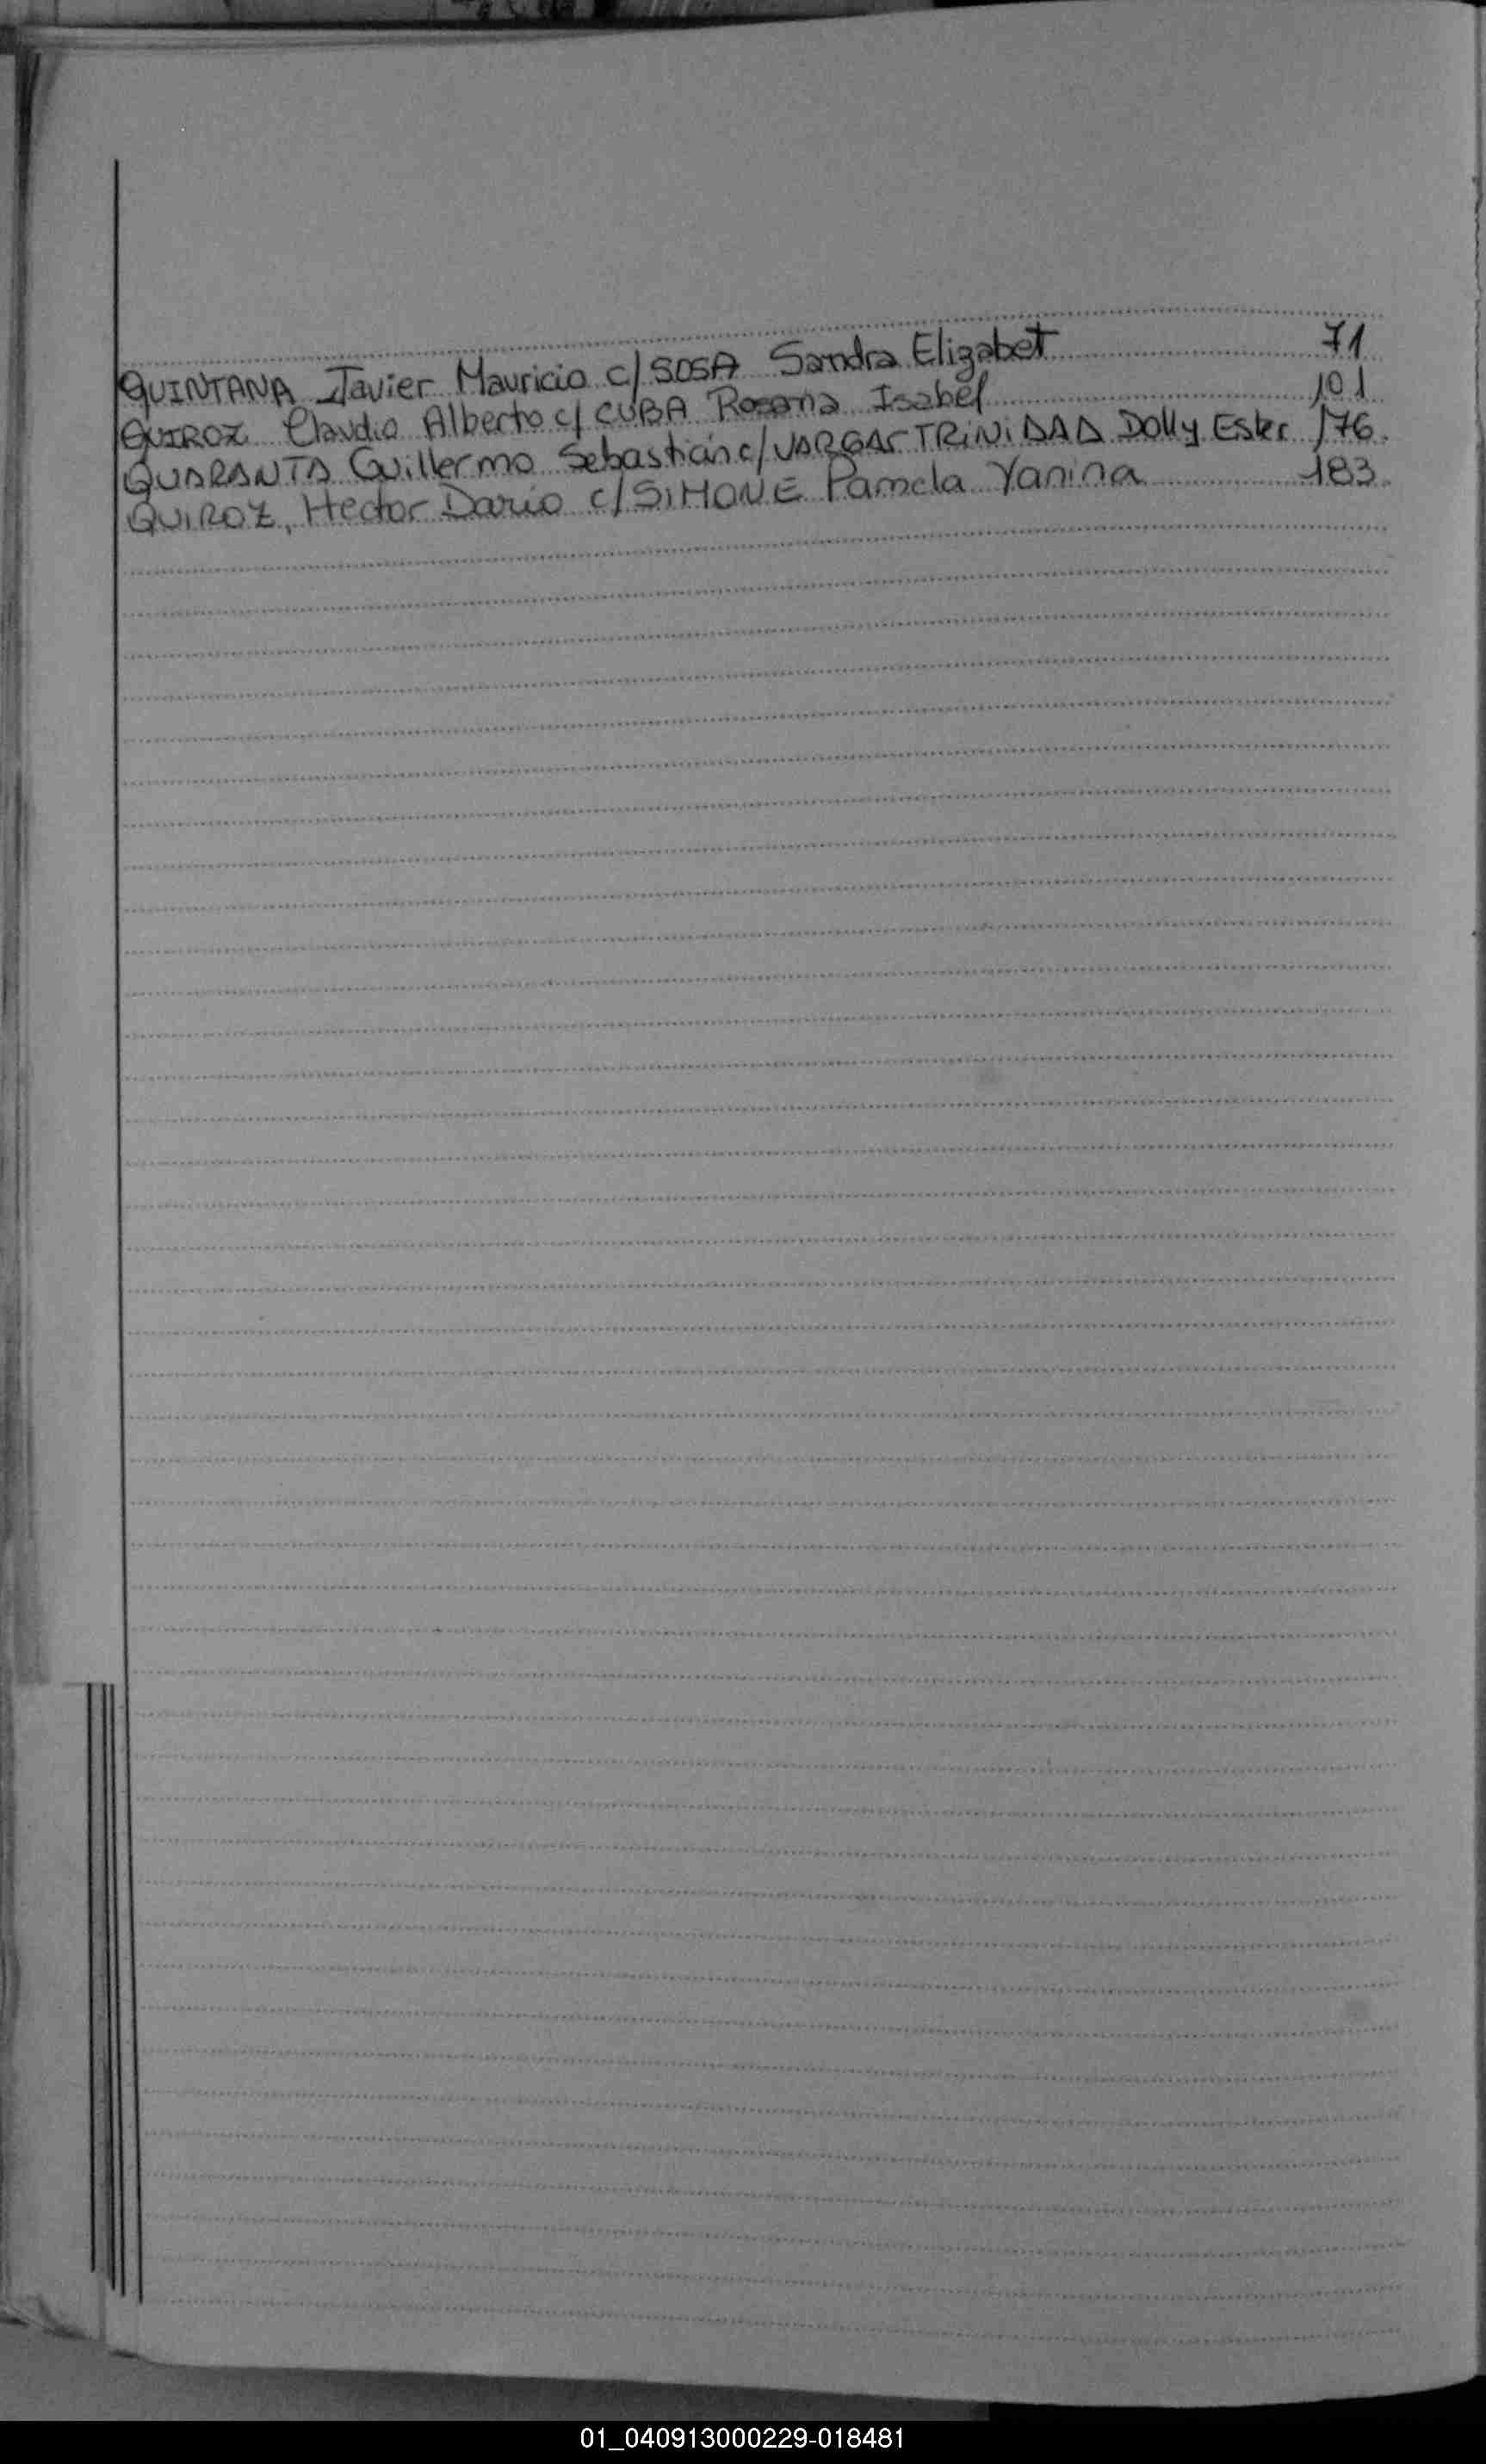 QUINTANA Javier Mauricio c/ SOSA Sandra Elizabet 71
QUIROZ Claudio Alberto c/ CUBA Rosana Isabel 101
QUARANTA Guillermo Sebastián c/ VARGAS TRINIDAD Dolly Ester 176.
QUIROZ, Hector Dario c/ SIMONE Pamela Yanina 183.
01_040913000229-018481